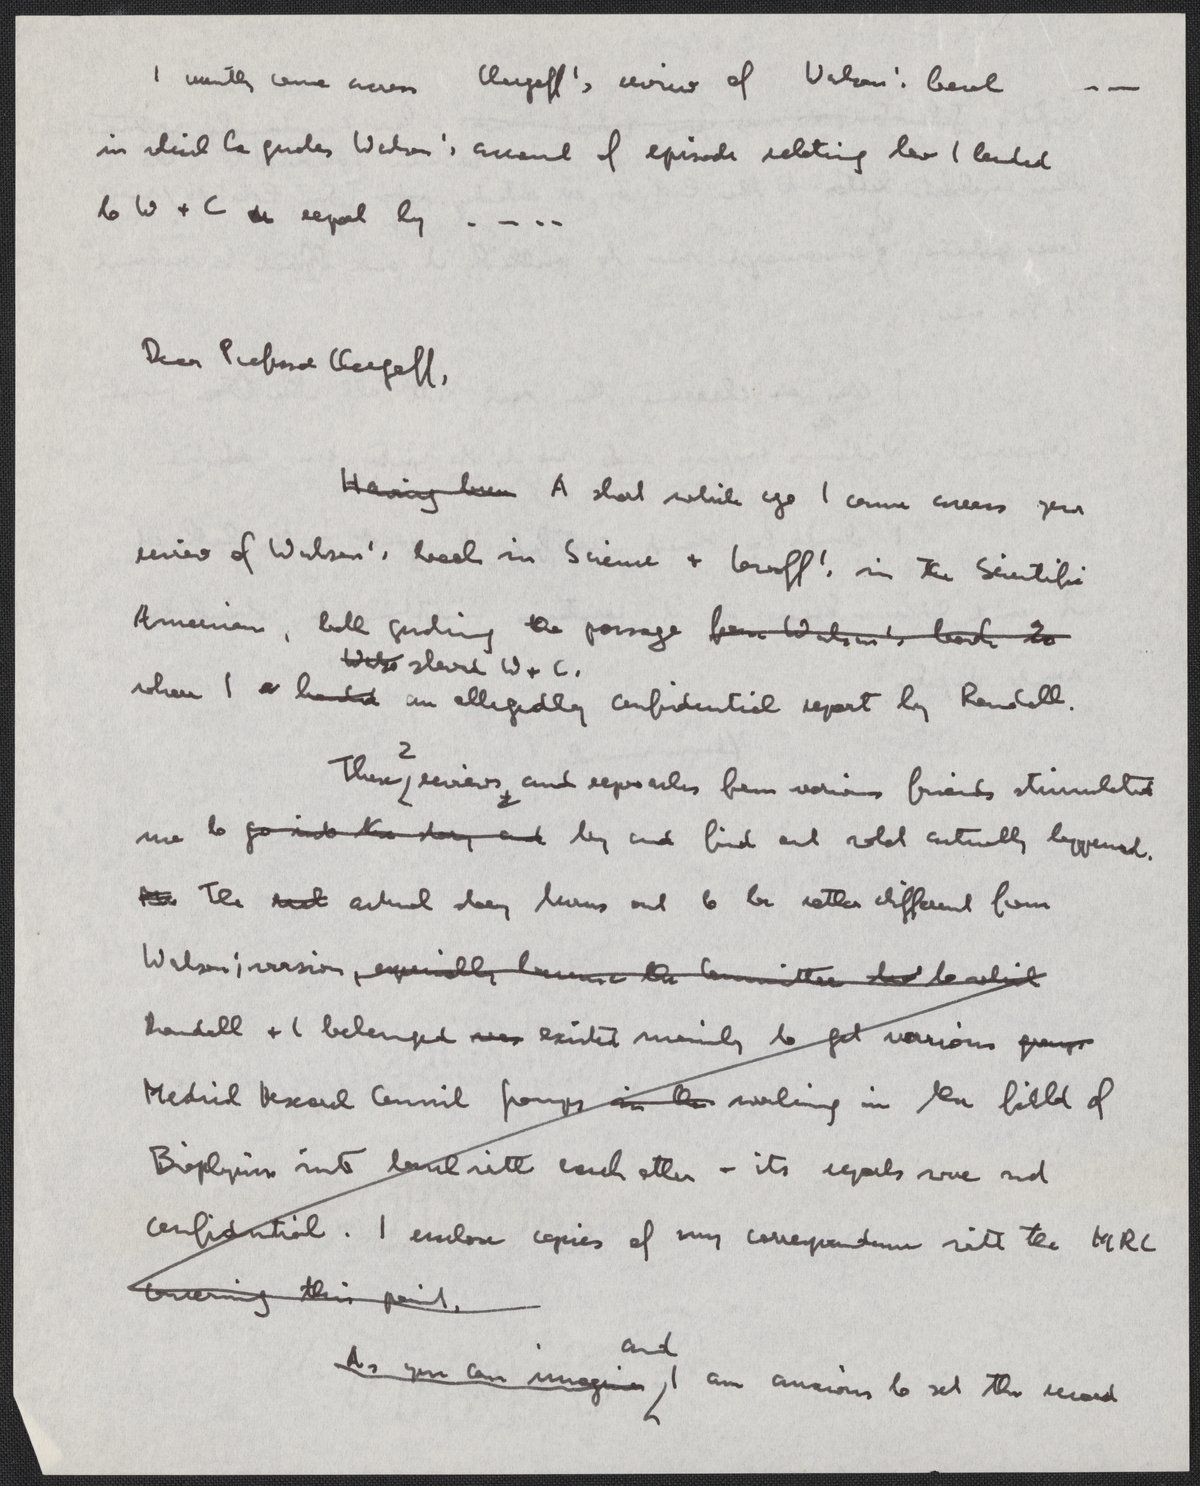 I recently came across Chargaff's review of Watson's book ----
in which he quotes Watson's account of episode relating how I handed
to W + C a report by ----
Dear Professor Chargaff,
Having been A short while ago I came across your
review of Watson's book in Science + Lwoff's in the Scientific
American, both quoting the passage from Watson's book
showed W + C.
where I handed an allegedly confidential report by Randall.
2
These reviews, and reproaches from various friends stimulated
me to go into the story and try and find out what actually happened.
The actual story turns out to be rather different from
Watson's version, especially because the Committee to which
Randall + I belonged was existed mainly to get various groups
Medical Research Council groups in the working in the field of
Biophysics into touch with each other - its reports were not
confidential. I enclose copies of my correspondence with the MRC
concerning this point.
and
As you can imagine, I am anxious to set the record